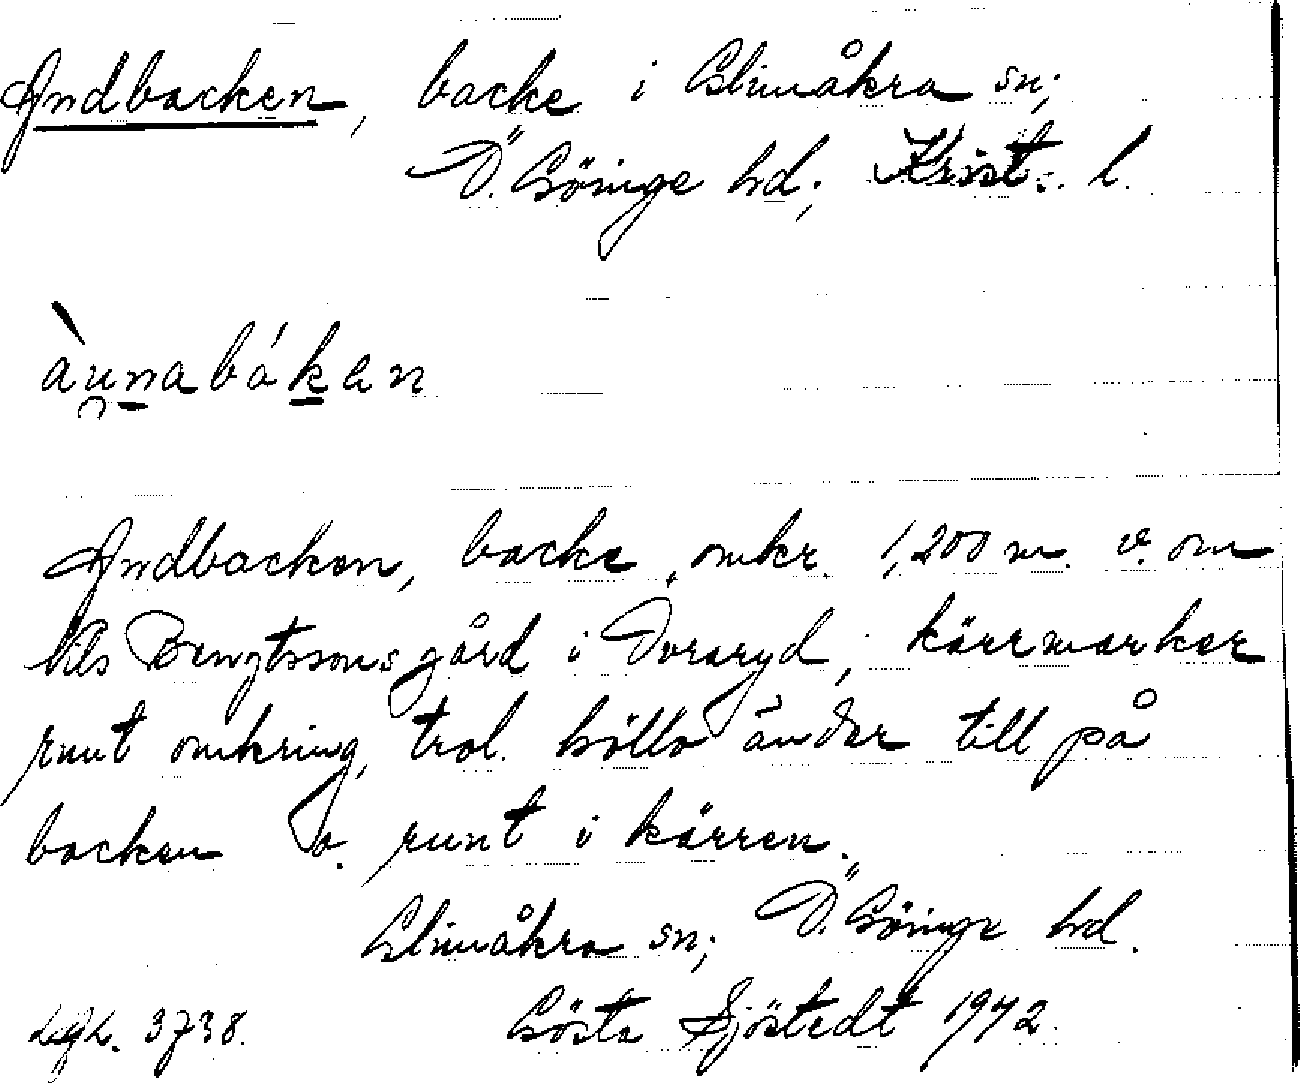 Andbacken, backe i Glimåkra sn;
Ö. Göinge hd; Krist. l.
àu̯nabákan
Andbacken, backe, omkr. 1,200 m. v. om
Nils Bengtssons gård i Dvraryd; kärrmarker
runt omkring, trol. höllo änder till på
backen o. runt i kärren.
Glimåkra sn; Ö. Göinge hd.
Lfgh. 3738. Gösta Sjöstedt 1942.